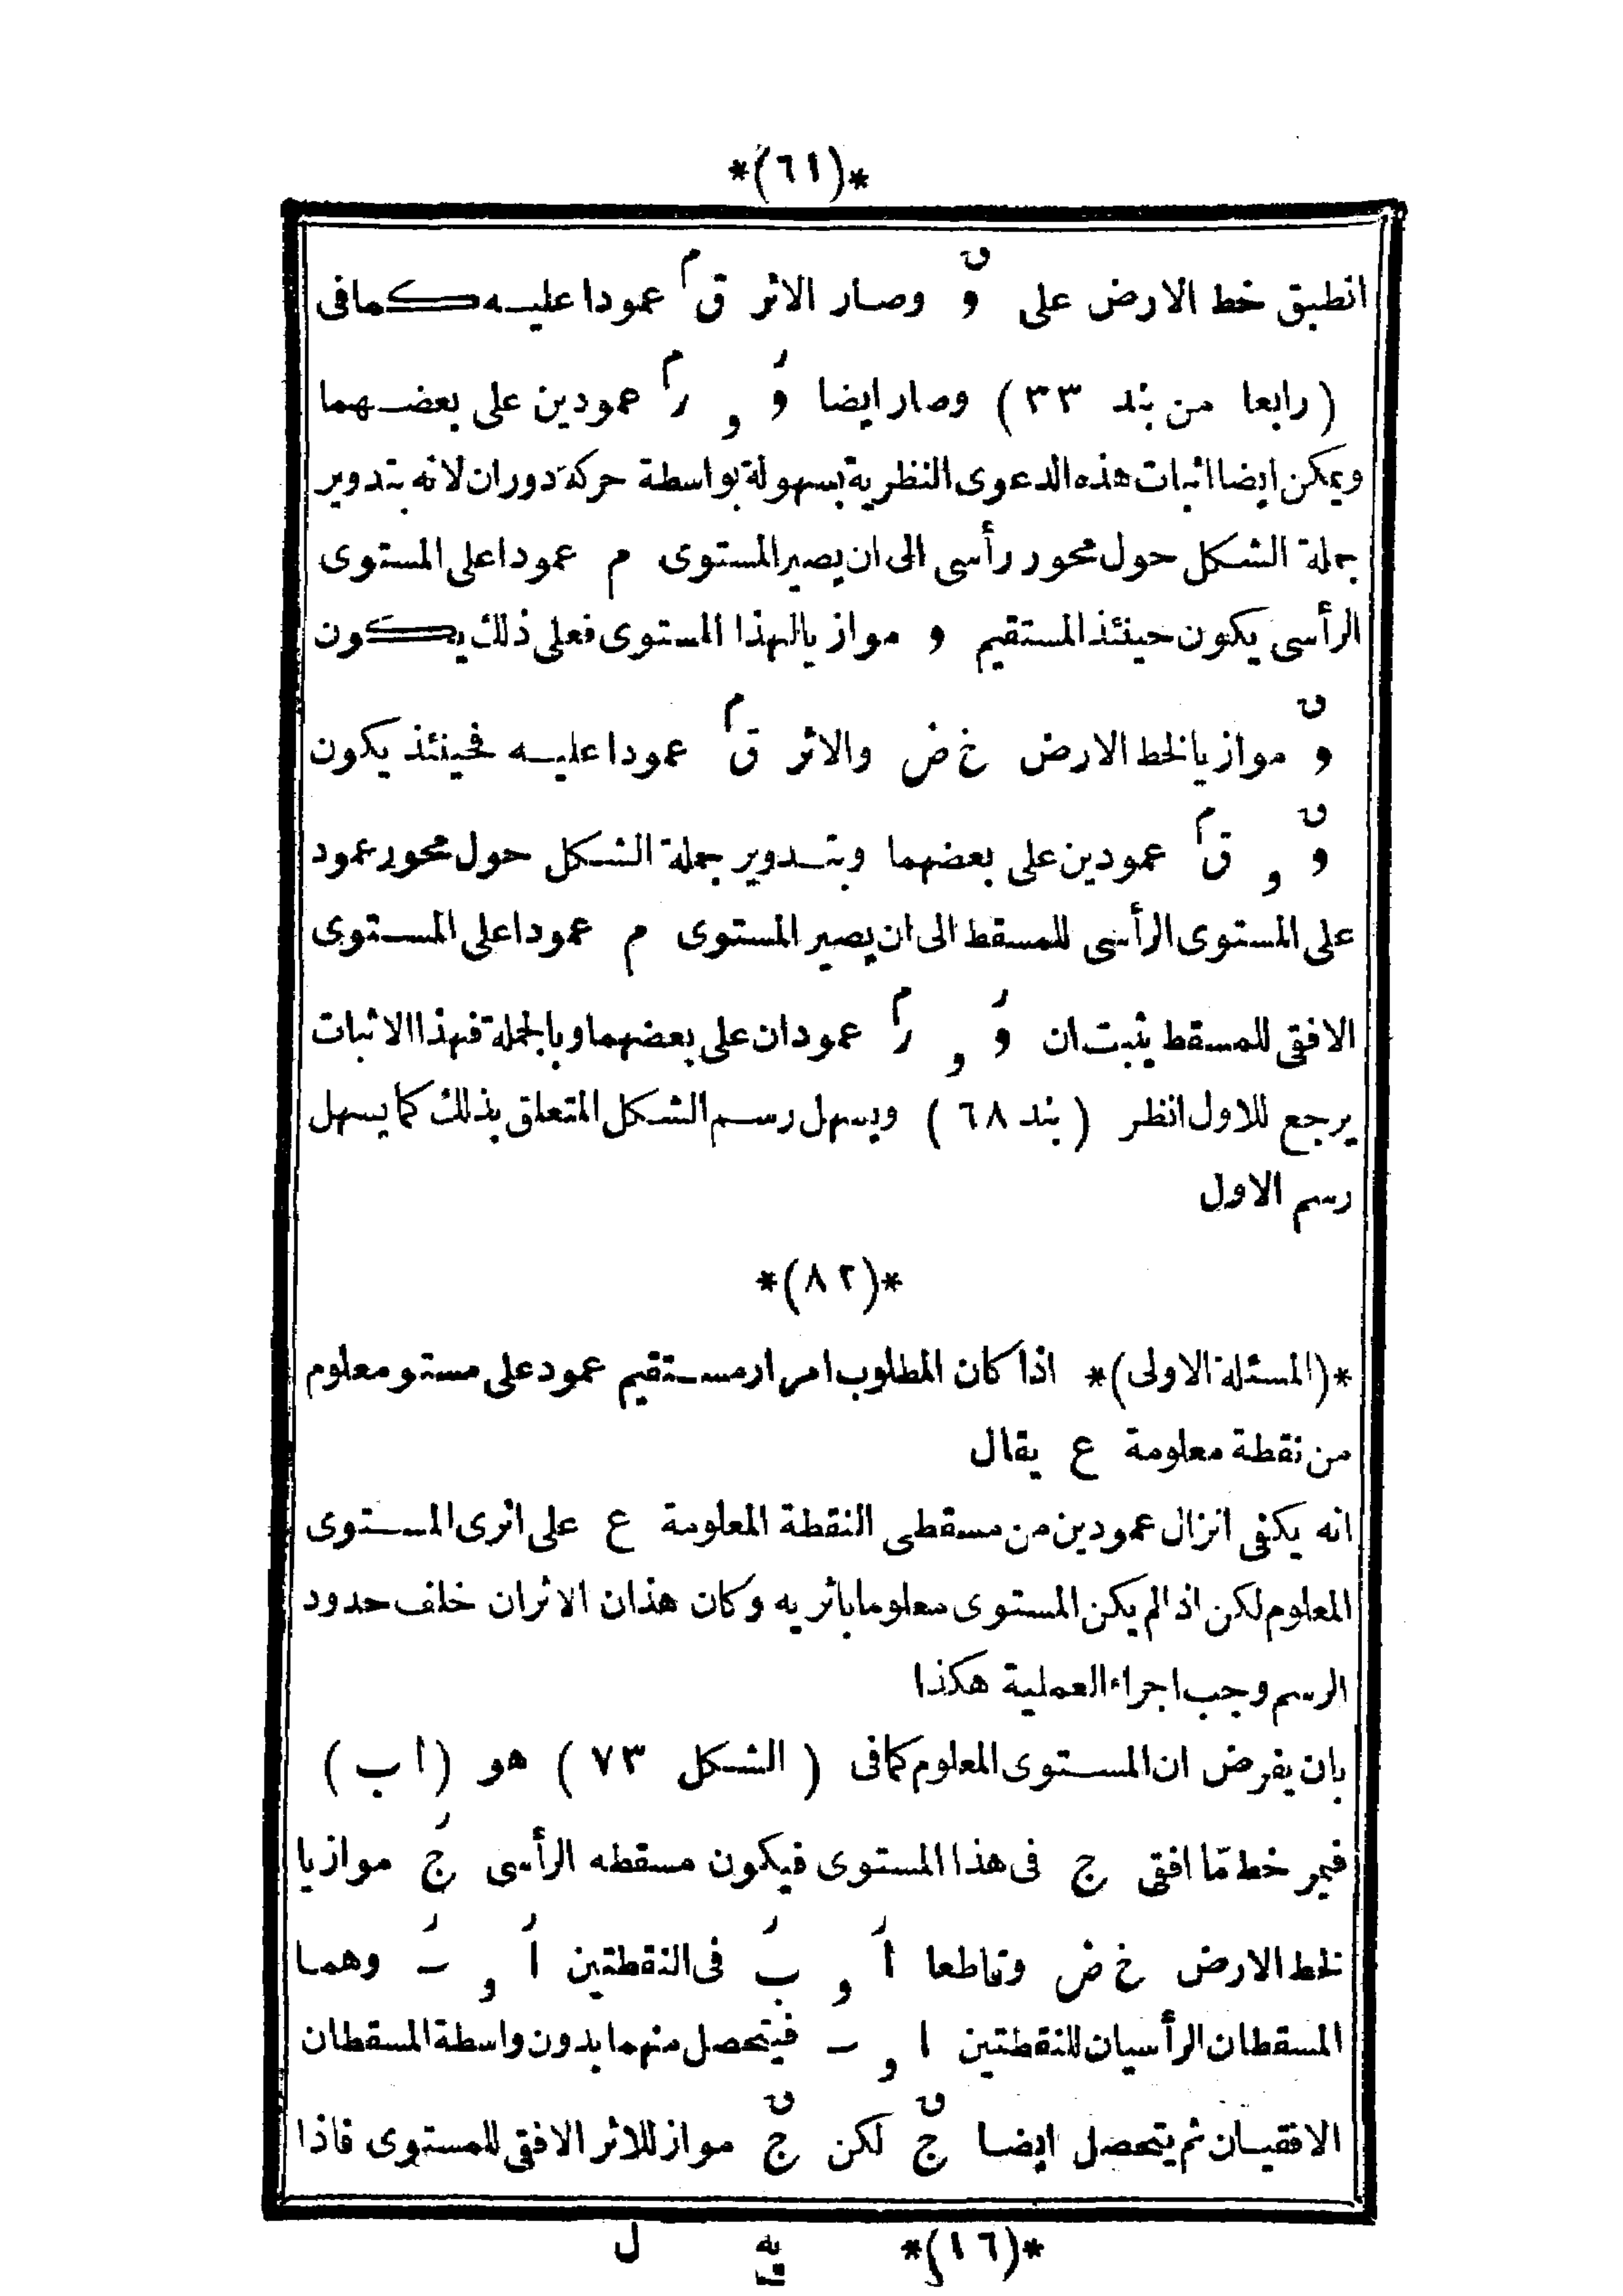 *(٦١)*
انطبق خط الارض على وٯ وصار الاثر ق م عمودا عليه كمافى
(رابعا من بند ٣٣) وصار ايضا وَر و ر م عمودين على بعضهما
ويمكن ايضا اثبات هذه الدعوى النظرية بسهولة بواسطة حركة دوران لانه بتدوير
جملة الشكل حول محور رأسى الى ان يصير المستوى م عمودا على المستوى
الرأسى يكون حينئذ المستقيم و موازيا لهذا المستوى فعلى ذلك يكون
وٯ موازيا لخط الارض خ ض والاثر ق م عمودا عليه فحينئذ يكون
وٯ و ق م عمودين على بعضهما وبتدوير جملة الشكل حول محور عمود
على المستوى الرأسى للمسقط الى ان يصير المستوى م عمودا على المستوى
الافقى للمسقط يثبت ان وَر و ر م عمودان على بعضهما وبالجملة فهذا الاثبات
يرجع للاول انظر (بند ٦٨) ويسهل رسم الشكل المتعلق بذلك كما يسهل
رسم الاول
*(٨٢)*
*(المسئلة الاولى)* اذا كان المطلوب امرار مستقيم عمود على مستو معلوم
من نقطة معلومة ع يقال
انه يكفى انزال عمودين من مسقطى النقطة المعلومة ع على اثرى المستوى
المعلوم لكن اذا لم يكن المستوى معلوما باثريه وكان هذان الاثران خلف حدود
الرسم وجب اجراء العملية هكذا
بان يفرض ان المستوى المعلوم كمافى (الشكل ٧٣) هو (ا ب)
فيمر خط مّا افقى ج فى هذا المستوى فيكون مسقطه الرأسى جَر موازيا
لخط الارض خ ض وقاطعا اَر و بَر فى النقطتين اَر و ـَر وهما
المسقطان الرأسيان للنقطتين ا و ـ فيتحصل منهما بدون واسطة المسقطان
الافقيان ثم يتحصل ايضا جٯ لكن جٯ مواز للاثر الافقى للمستوى فاذا
*(١٦)* يه ل